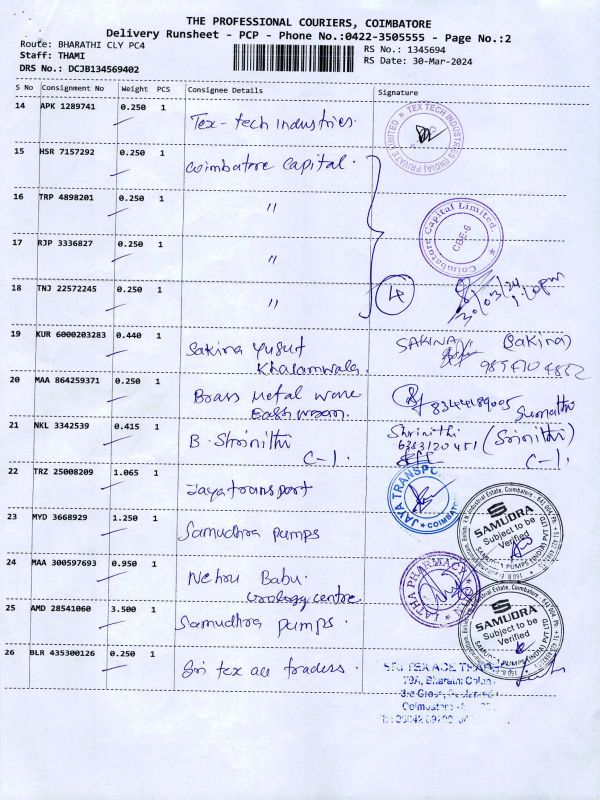 THE PROFESSIONAL COURIERS, COIMBATORE
Delivery Runsheet - PCP - Phone No.:0422-3505555 - Page No.:2
Route: BHARATHI CLY PC4
RS No.: 1345694
Staff: THAMI
RS Date: 30-Mar-2024
DRS No.: DCJB134569402
S No Consignment No Weight PCS Consignee Details Signature
14 APK 1289741 0.250 1 Tex-tech Industries.
TEX TECH INDUSTRIES (INDIA) PRIVATE LIMITED
15 HSR 7157292 0.250 1 Coimbatore Capital.
16 TRP 4898201 0.250 1 "
Coimbatore Capital Limited. CBE-6
17 RJP 3336827 0.250 1 "
18 TNJ 22572245 0.250 1 "
4
30/03/24
19 KUR 6000203283 0.440 1 Sakina Yusuf
Khasamwala.
SAKINA (Sakina)
20 MAA 864259371 0.250 1 Brass Metal ware
8344189005 Sumathi
21 NKL 3342539 0.415 1 B. Shrinithi
C-1.
Shrinithi (Srinithi)
6383120451 C-1.
22 TRZ 25008209 1.065 1 Jayatransport
JAYA TRANSPORT COIMBATORE
23 MYD 3668929 1.250 1 Samudhra pumps
SAMUDRA
Subject to be
Verified
SAMUDRA PUMPS (INDIA) PVT LTD
24 MAA 300597693 0.950 1 Nehru Babu.
Urology centre.
LATHA PHARMACY
25 AMD 28541060 3.500 1 Samudhra pumps.
SAMUDRA
Subject to be
Verified
26 BLR 435300126 0.250 1 Sri tex ace traders.
SRI TEX ACE
Bharathi Colony
Coimbatore